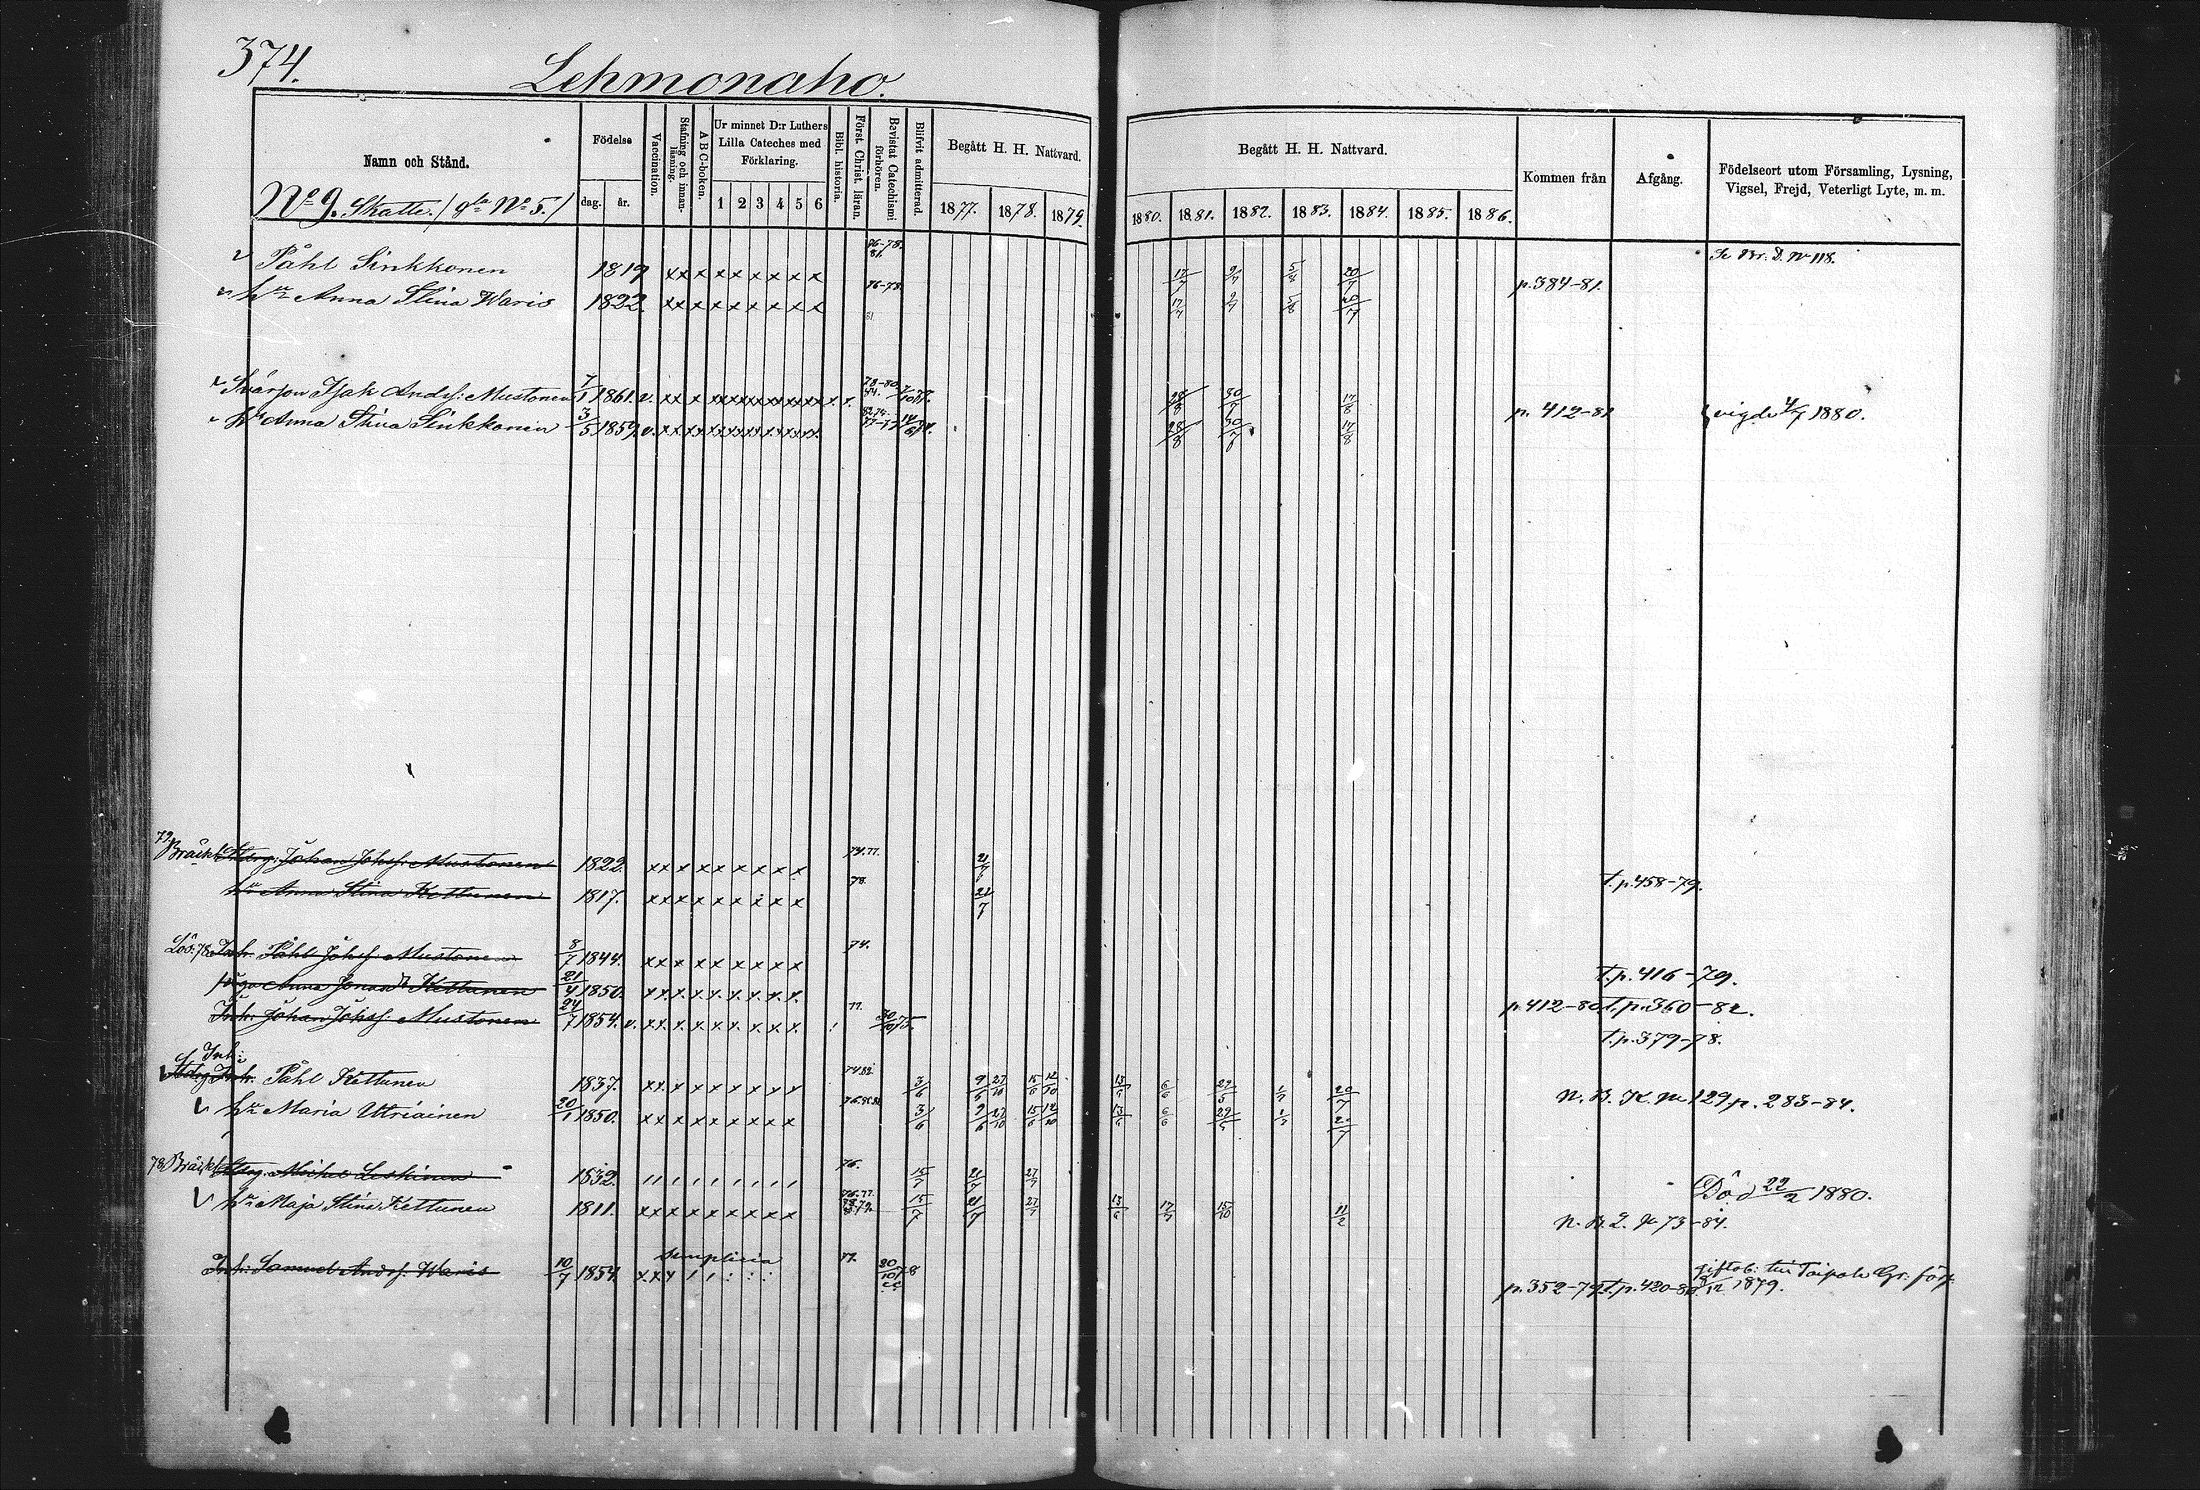 374.
Lehmonaho.
Namn och Stånd.
Födelse
dag. år.
Vaccination.
Stafning och innanläsning.
ABC-boken.
Ur minnet D:r Luthers Lilla Cateches med Förklaring.
1 2 3 4 5 6
Bibl. historia.
Först. Christ. läran.
Bevistat Catechismi förhören.
Blifvit admitterad.
Begått H. H. Nattvard.
1877. 1878. 1879.
Begått H. H. Nattvard.
1880. 1881. 1882. 1883. 1884. 1885. 1886.
Kommen från
Afgång.
Födelseort utom Församling, Lysning, Vigsel, Frejd, Veterligt Lyte, m. m.
No 9. Skatte. No 5.
Påhl Sinkkonen 1819 x x x x x x x x 76-78. 81. 17/7 2/7 20/7 p.384-81. No 118.
hu Anna Stina Waris 1822. x x x x x x x x 76-78. 81 17/7 2/7 5/8 20/7
Svärson Isak Andsf: Mustonen 7/1 1861. v. 28/8 30/7 17/8 p. 412-82 vigde 4/7 1880.
hu Anna Stina Sinkkonen 3/5 1859. v. 28/8 30/7 17/8
Johan Johsf: Mustonen 1822. x x x x x x x x 74.77. 21/7 t.p.458-79.
hu Anna Stina Kettunen 1817. x x x x x x x x 78. 21/7
Inh. Påhl Johsf: Mustonen 8/7 1844. x x x x x x x x 74. t.p.416-79.
Anna Jonasd: Kettunen 21/4 1850. x x x x x x x x
Inh. Johan Johsf: Mustonen 24/7 1854. v. x x x x x x x x 77. 30/10 75. p.412-80. t.p.360-82.
t.p.379-78.
Inh:
Inh. Påhl Kettunen 1837. x x x x x x x x 74.82. 3/6 9/6 27/10 15/6 12/10 13/6 6/6 29/5 1/7 20/7 N. B. K. No 129 p. 283-84.
hu Maria Utriainen 20/1 1850. x x x x x x x x 3/6 9/6 27/10 15/6 12/10 13/6 6/6 29/5 1/7 20/7
Michel Leskinen 1832. 76. 15/7 21/7 27/7 Död 22/2 1880.
hu Maja Stina Kettunen 1811. x x x x x x x x 15/7 21/7 27/7 13/6 17/7 15/10 11/2
Simplicia
Inh: Samuel Andsf: Waris 10/7 1854. 77. 20/10 78 p.352-79. t.p.420-80. Taipale
12 1879.